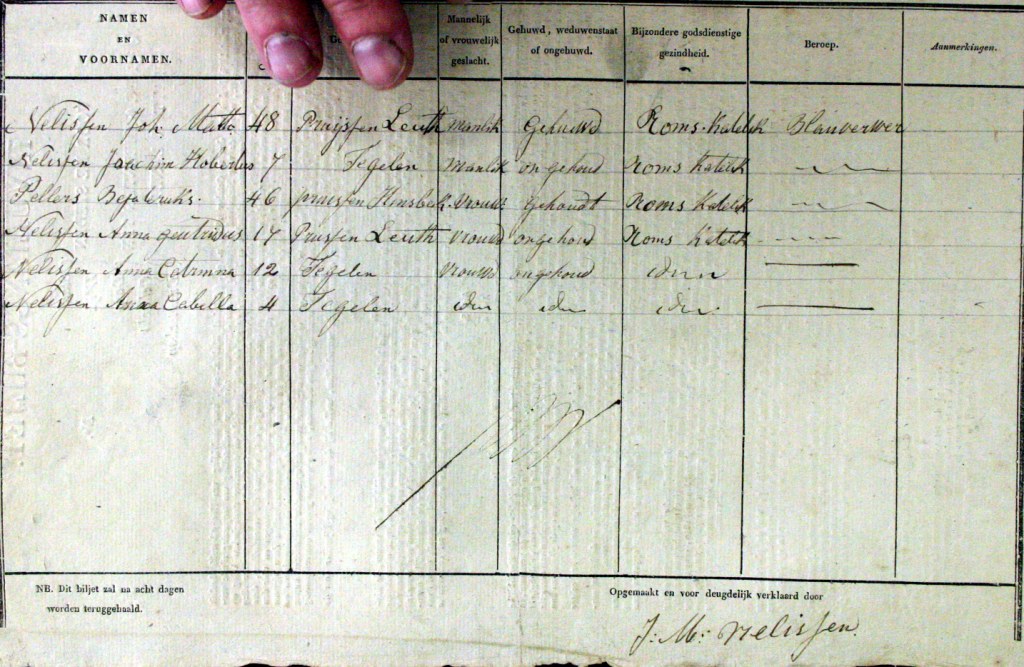 NAMEN EN VOORNAMEN. Mannelijk of vrouwelijk geslacht. Gehuwd, weduwenstaat of ongehuwd. Bijzondere godsdienstige gezindheid. Beroep. Aanmerkingen.
Nelissen Joh. Matts 48 Pruijssen Leuth manlik Gehuwd Roms. Katelik Blauverwer
Nelissen Joachim Hobertus 7 Tegelen manlik ongehoud Roms Katelik
Pellers 46 pruissen Hinsbeck vrouw gehoudt Roms Katelik
Nelissen Anna 17 Prussen Leuth vrouw ongehoud Roms Katelik
Nelissen Anna Catrinna 12 Tegelen vrouw ongehoud idem
Nelissen Anna Cabella 4 Tegelen idem idem idem
NB. Dit biljet zal na acht dagen worden teruggehaald.
Opgemaakt en voor deugdelijk verklaard door
J: M: Nelissen